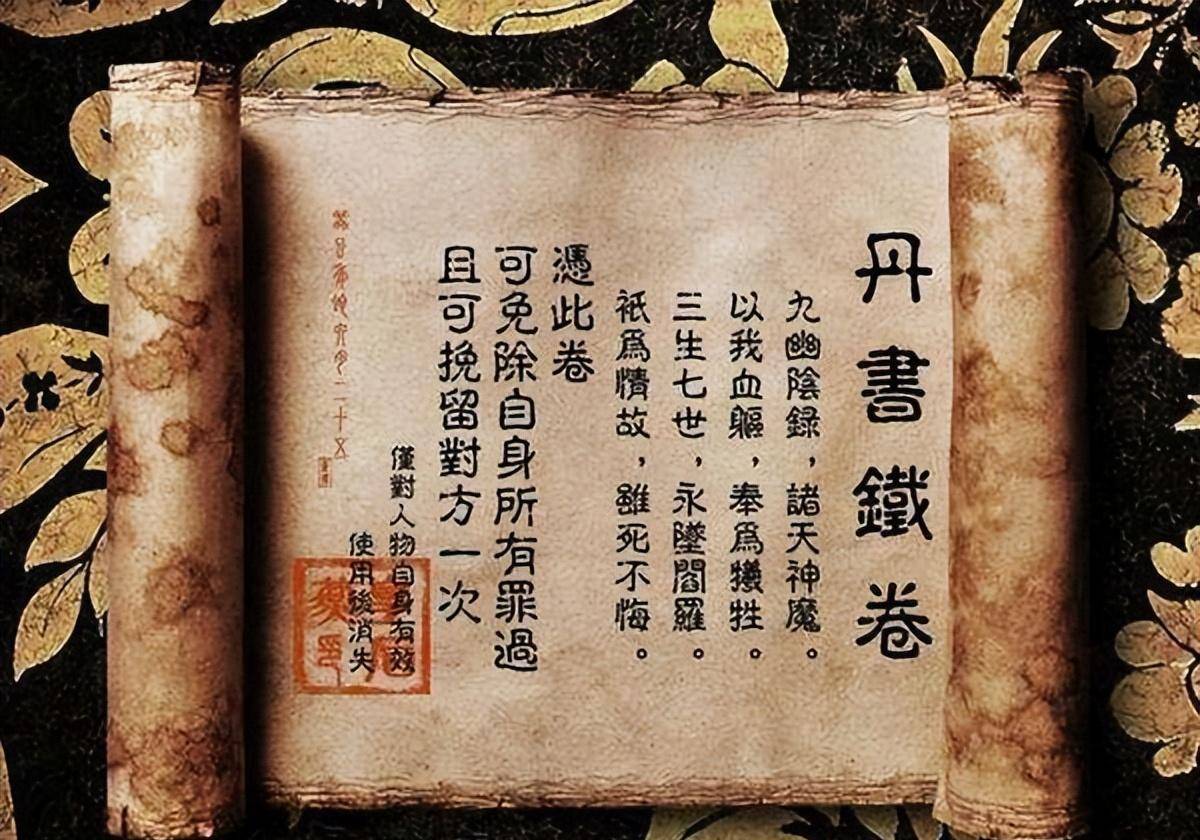 丹書鐵卷
九幽陰録，諸天神魔。
以我血軀，奉爲犧牲。
三生七世，永墜閻羅。
祇爲情故，雖死不悔。
憑此卷
可免除自身所有罪過
且可挽留對方一次
僅對人物自身有效
使用後消失